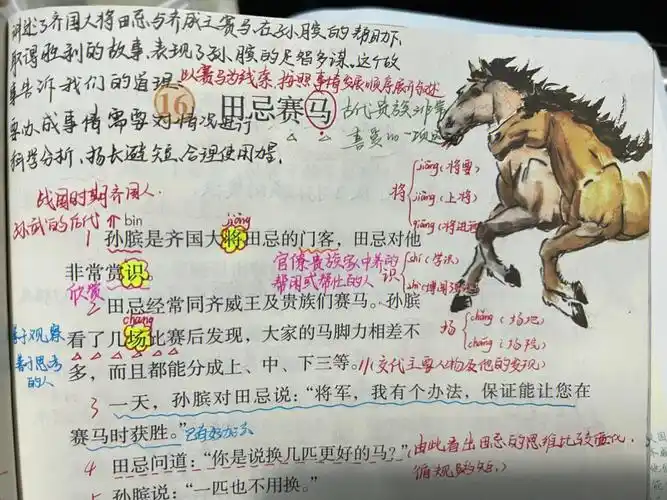 讲述了齐国大将田忌与齐威王赛马,在孙膑的帮助下,
取得胜利的故事,表现了孙膑的足智多谋,这个故
事告诉我们的道理
以赛马为线索,按照事情发展顺序展开叙述
要办成事情需要对情况进行
科学分析,扬长避短,合理使用力量.
16 田忌赛马
古代贵族非常
喜爱的一项
将 jiāng(将要)
jiàng(上将)
qiāng(将进酒)
战国时期齐国人.
孙武的后代
bìn
jiàng
1 孙膑是齐国大将田忌的门客,田忌对他
非常赏识。
欣赏
官僚贵族家中养的
帮闲或帮忙的人
识 shí(学识)
zhì(博闻强识)
2 田忌经常同齐威王及贵族们赛马。孙膑
chǎng
看了几场比赛后发现,大家的马脚力相差不
善于观察
善于思考
的人
场 chǎng(场地)
cháng(场院)
多,而且都能分成上、中、下三等。
(交代主要人物及他的发现)
3 一天,孙膑对田忌说:“将军,我有个办法,保证能让您在
赛马时获胜。”
已有好办法
4 田忌问道:“你是说换几匹更好的马?”
(由此看出田忌的思维比较固化,
循规蹈矩.)
5 孙膑说:“一匹也不用换。”